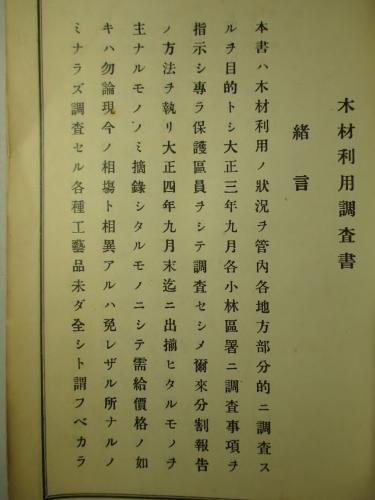 木材利用調査書
緒言
本書ハ木材利用ノ狀況ヲ管內各地方部分的ニ調査ス
ルヲ目的トシ大正三年九月各小林區署ニ調査事項ヲ
指示シ專ラ保護區員ヲシテ調査セシメ爾來分割報告
ノ方法ヲ執リ大正四年九月末迄ニ出揃ヒタルモノヲ
主ナルモノノミ摘錄シタルモノニシテ需給價格ノ如
キハ勿論現今ノ相塲ト相異アルハ免レザル所ナルノ
ミナラズ調査セル各種工藝品未ダ全シト謂フベカラ